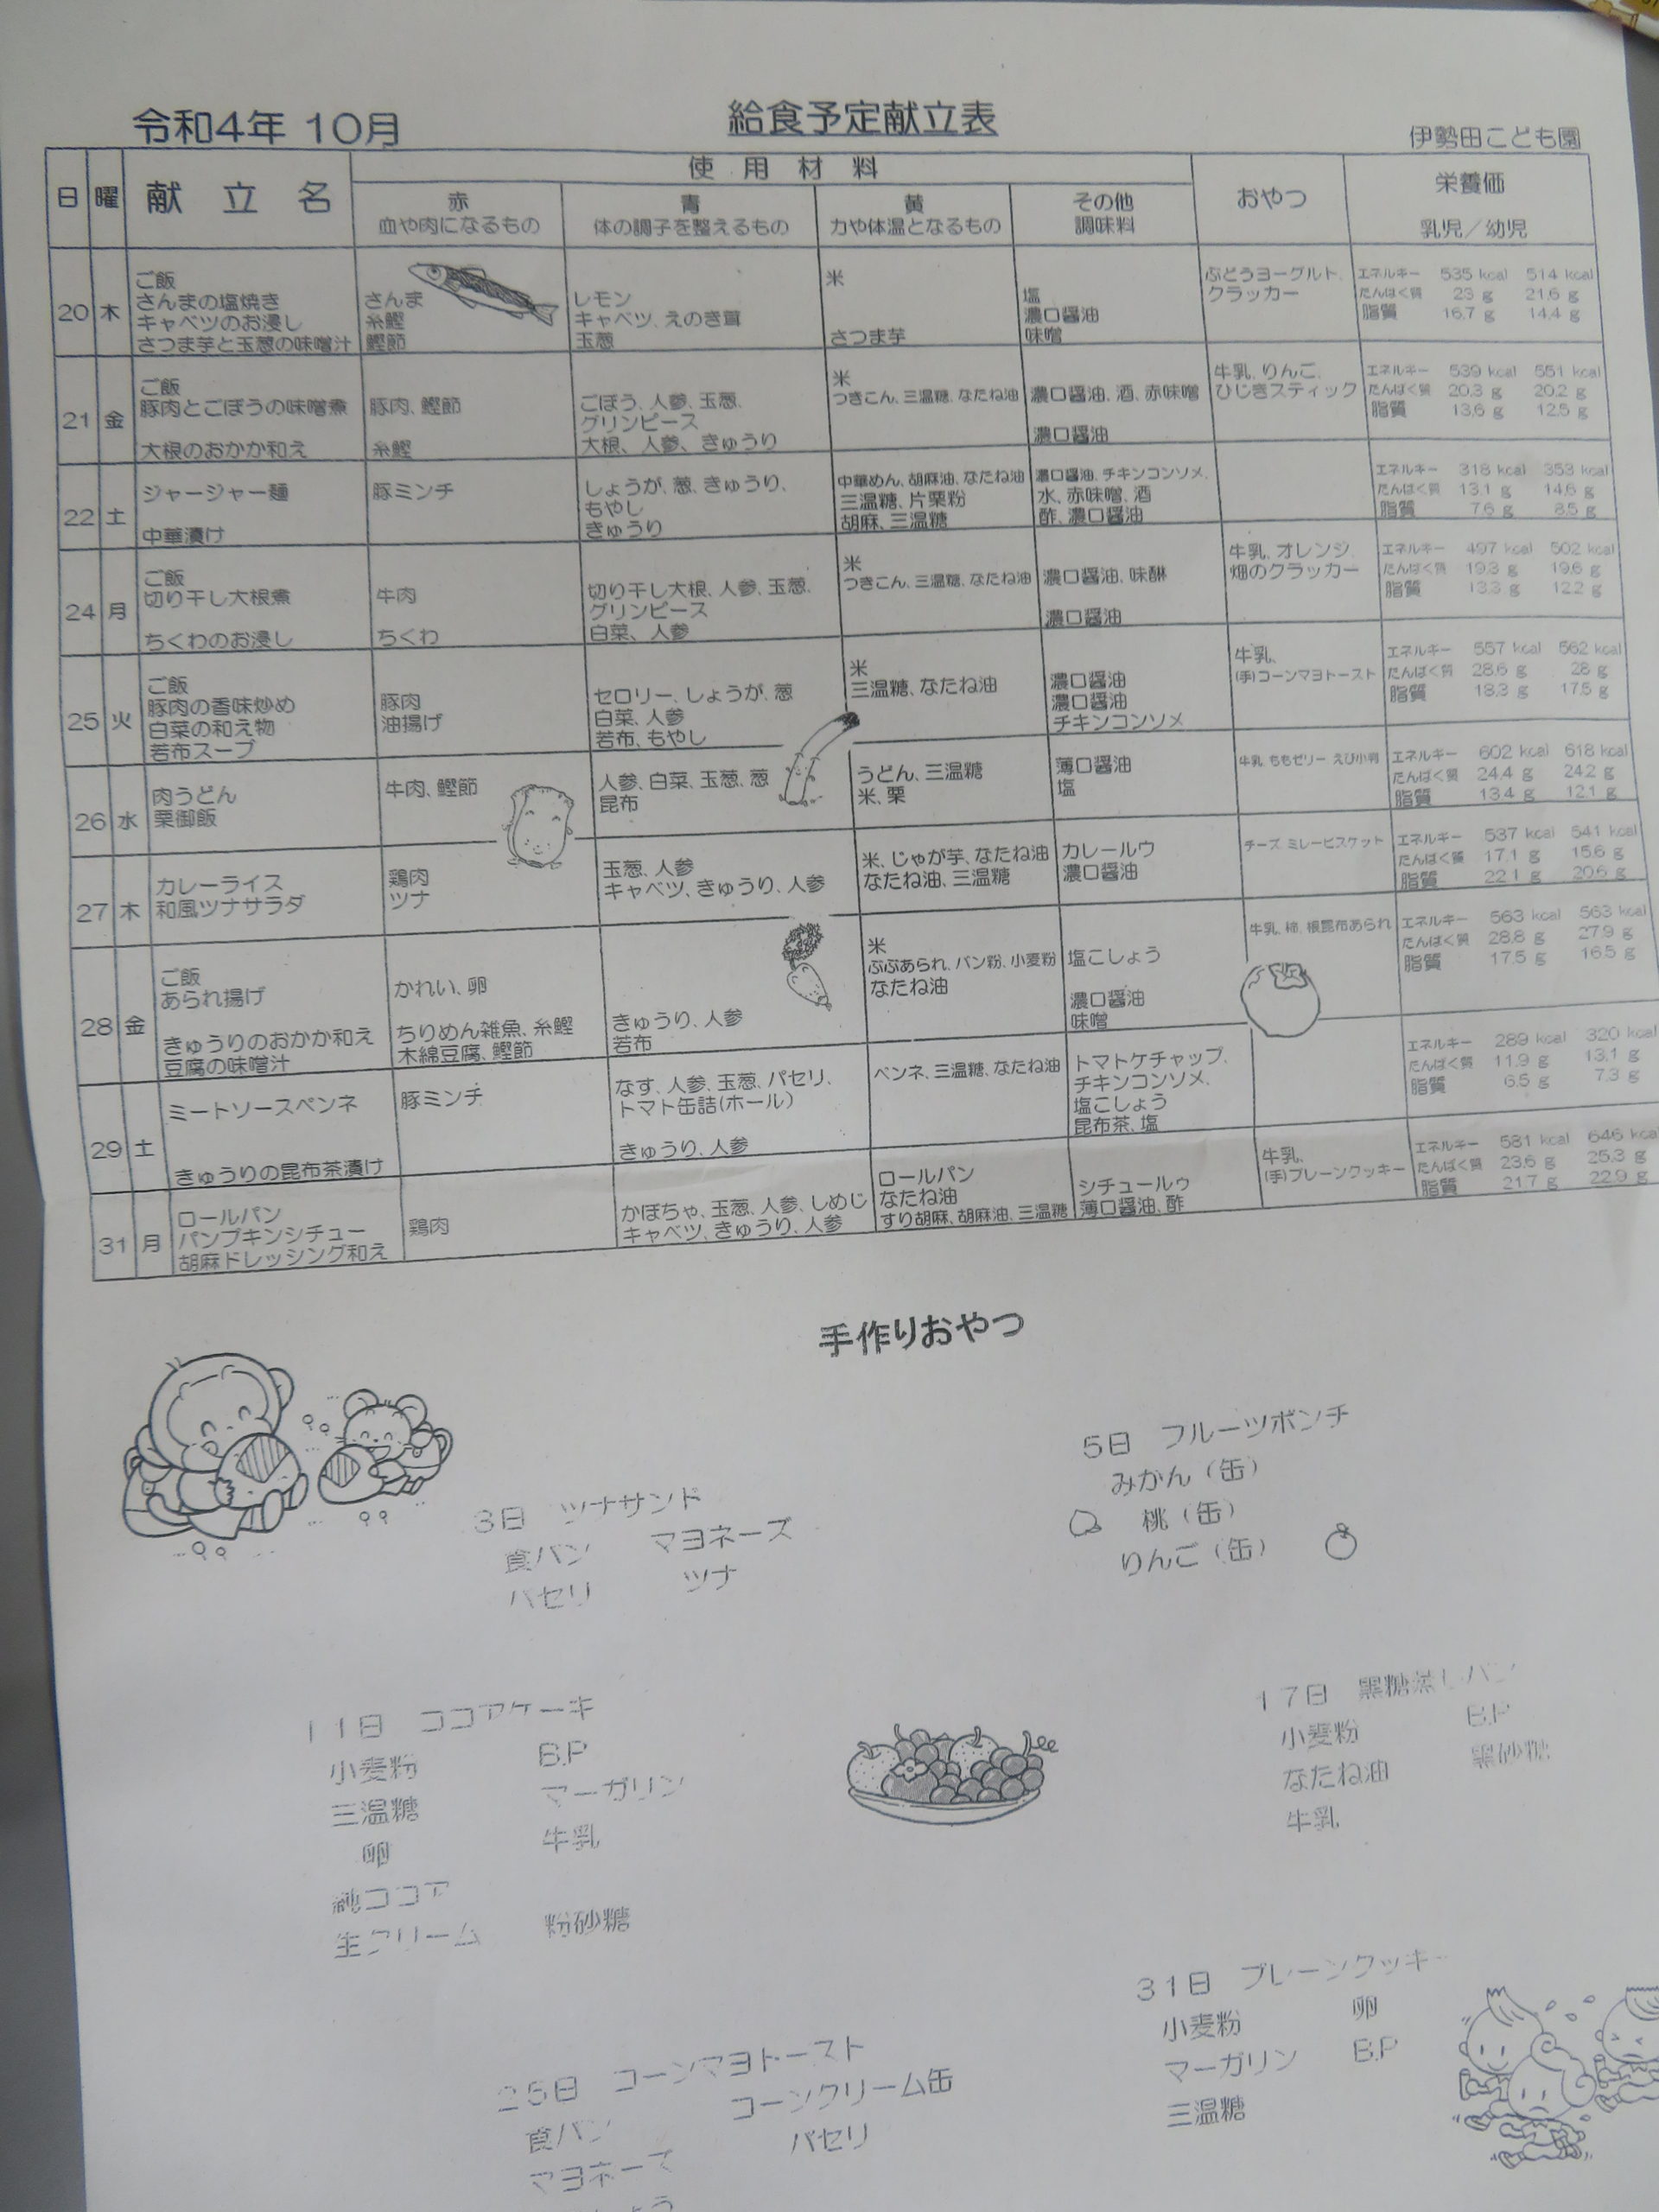 令和4年 10月
給食予定献立表
伊勢田こども園
日 曜 献立名 使用材料 おやつ 栄養価
赤 青 黄 その他
血や肉になるもの 体の調子を整えるもの 力や体温となるもの 調味料 乳児／幼児
20 木
ご飯 米 ぶどうヨーグルト、 エネルギー 535 kcal 514 kcal
さんまの塩焼き さんま レモン 塩 クラッカー たんぱく質 23 g 21.6 g
キャベツのお浸し 糸鰹 キャベツ、えのき茸 濃口醤油 脂質 16.7 g 14.4 g
さつま芋と玉葱の味噌汁 鰹節 玉葱 さつま芋 味噌
21 金
ご飯 米 牛乳、りんご、 エネルギー 539 kcal 551 kcal
豚肉とごぼうの味噌煮 豚肉、鰹節 ごぼう、人参、玉葱、 つきこん、三温糖、なたね油 濃口醤油、酒、赤味噌 ひじきスティック たんぱく質 20.3 g 20.2 g
グリンピース 脂質 13.6 g 12.5 g
大根のおかか和え 糸鰹 大根、人参、きゅうり 濃口醤油
22 土
ジャージャー麺 豚ミンチ しょうが、葱、きゅうり、 中華めん、胡麻油、なたね油 濃口醤油、チキンコンソメ、 エネルギー 318 kcal 353 kcal
もやし 三温糖、片栗粉 水、赤味噌、酒 たんぱく質 13.1 g 14.6 g
中華漬け きゅうり 胡麻、三温糖 酢、濃口醤油 脂質 7.6 g 8.5 g
24 月
ご飯 米 牛乳、オレンジ、 エネルギー 497 kcal 502 kcal
切り干し大根煮 牛肉 切り干し大根、人参、玉葱、 つきこん、三温糖、なたね油 濃口醤油、味醂 畑のクラッカー たんぱく質 19.3 g 19.6 g
グリンピース 脂質 13.3 g 12.2 g
ちくわのお浸し ちくわ 白菜、人参 濃口醤油
25 火
ご飯 米 牛乳、 エネルギー 557 kcal 562 kcal
豚肉の香味炒め 豚肉 セロリー、しょうが、葱 三温糖、なたね油 濃口醤油 (手)コーンマヨトースト たんぱく質 28.6 g 28 g
白菜の和え物 油揚げ 白菜、人参 濃口醤油 脂質 18.3 g 17.5 g
若布スープ 若布、もやし チキンコンソメ
26 水
肉うどん 牛肉、鰹節 人参、白菜、玉葱、葱 うどん、三温糖 薄口醤油 牛乳 ももゼリー えび小判 エネルギー 602 kcal 618 kcal
栗御飯 昆布 米、栗 塩 たんぱく質 24.4 g 24.2 g
脂質 13.4 g 12.1 g
27 木
カレーライス 鶏肉 玉葱、人参 米、じゃが芋、なたね油 カレールウ チーズ ミレービスケット エネルギー 537 kcal 541 kcal
和風ツナサラダ ツナ キャベツ、きゅうり、人参 なたね油、三温糖 濃口醤油 たんぱく質 17.1 g 15.6 g
脂質 22.1 g 20.6 g
28 金
ご飯 米 牛乳、柿、根昆布あられ エネルギー 563 kcal 563 kcal
あられ揚げ かれい、卵 ぶぶあられ、パン粉、小麦粉 塩こしょう たんぱく質 28.8 g 27.9 g
なたね油 脂質 17.5 g 16.5 g
きゅうりのおかか和え ちりめん雑魚、糸鰹 きゅうり、人参 濃口醤油
豆腐の味噌汁 木綿豆腐、鰹節 若布 味噌
29 土
ミートソースペンネ 豚ミンチ なす、人参、玉葱、パセリ、 ペンネ、三温糖、なたね油 トマトケチャップ、 エネルギー 289 kcal 320 kcal
トマト缶詰(ホール) チキンコンソメ、 たんぱく質 11.9 g 13.1 g
塩こしょう 脂質 6.5 g 7.3 g
きゅうりの昆布茶漬け きゅうり、人参 昆布茶、塩
31 月
ロールパン ロールパン 牛乳、 エネルギー 581 kcal 646 kcal
パンプキンシチュー 鶏肉 かぼちゃ、玉葱、人参、しめじ なたね油 シチュールゥ (手)プレーンクッキー たんぱく質 23.6 g 25.3 g
胡麻ドレッシング和え キャベツ、きゅうり、人参 すり胡麻、胡麻油、三温糖 薄口醤油、酢 脂質 21.7 g 22.9 g
手作りおやつ
3日 ツナサンド
食パン マヨネーズ
パセリ ツナ
5日 フルーツポンチ
みかん（缶）
桃（缶）
りんご（缶）
11日 ココアケーキ
小麦粉 B.P
三温糖 マーガリン
卵 牛乳
純ココア
生クリーム 粉砂糖
17日 黒糖蒸しパン
小麦粉 B.P
なたね油 黒砂糖
牛乳
25日 コーンマヨトースト
食パン コーンクリーム缶
マヨネーズ パセリ
31日 プレーンクッキー
小麦粉 卵
マーガリン B.P
三温糖